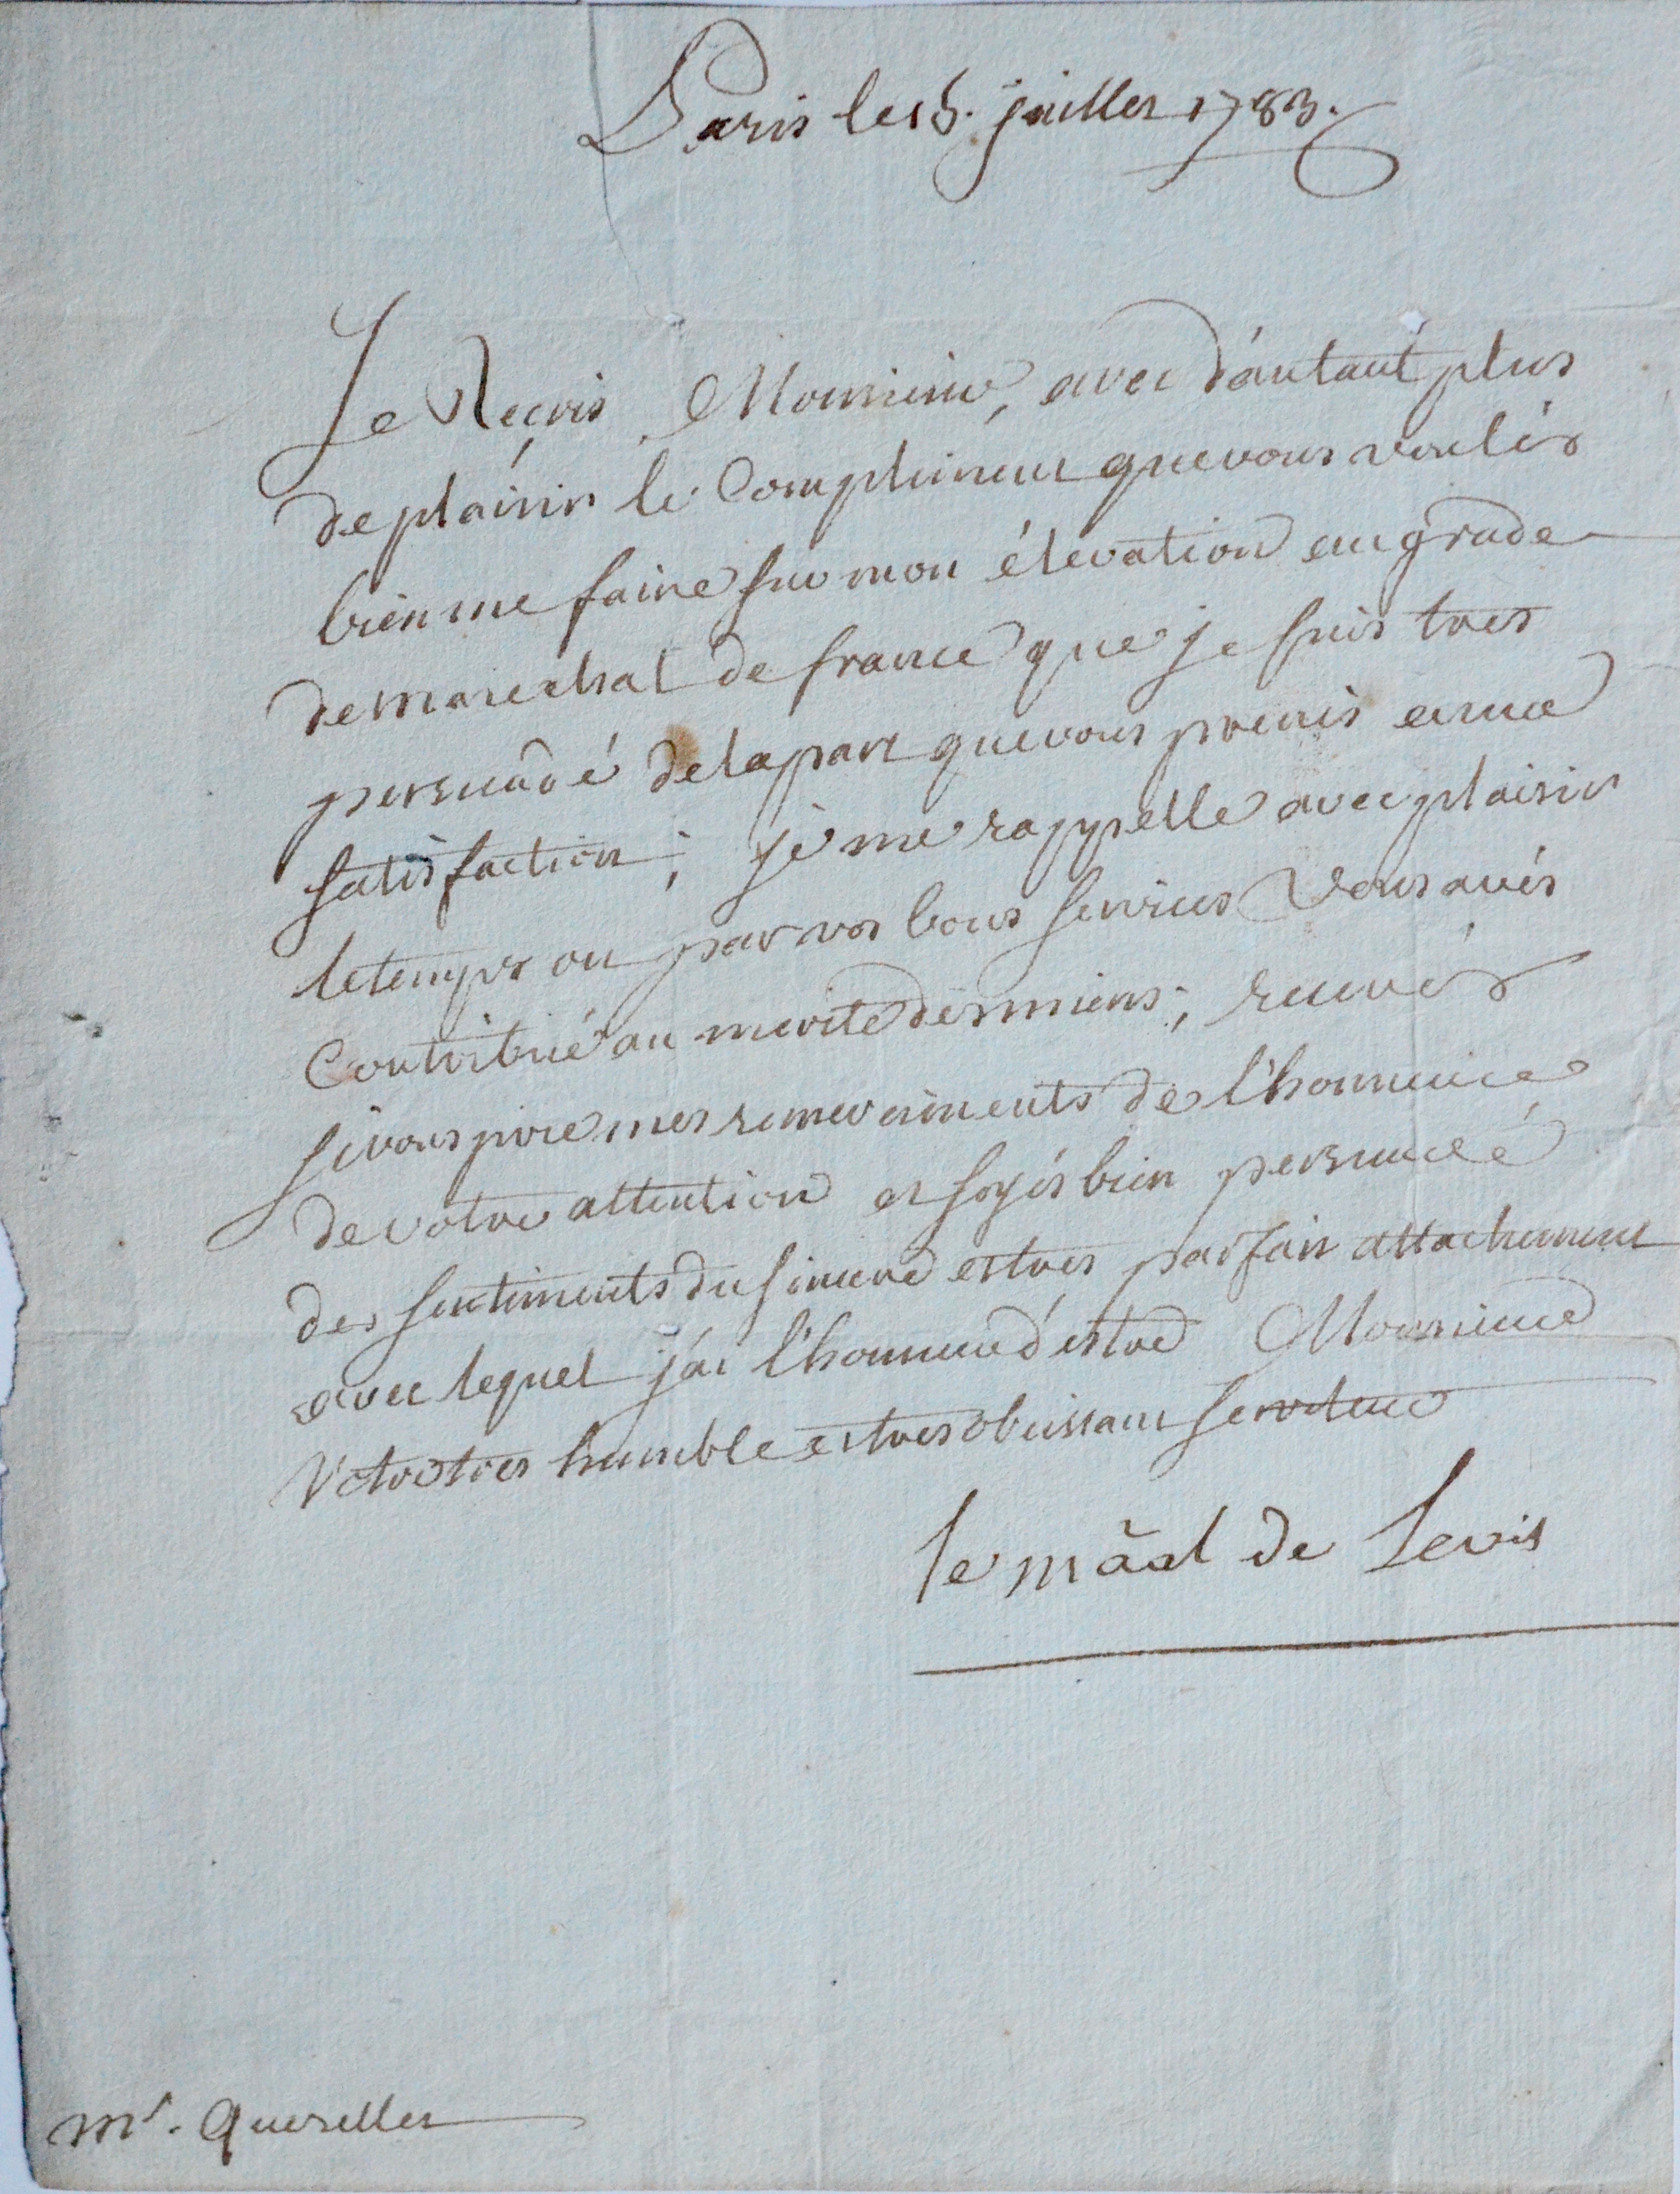 Paris le 15. juillet 1783.
Je Reçois, Monsieur, avec d'autant plus
de plaisir le Compliment que vous voulés
bien me faire sur mon élevation au grade
de marechal de france que je suis tres
persuadé de la part que vous prenés a ma
satisfaction; je me rappelle avec plaisir
le temps ou par vos bons services Vous avés
Contribué au merite des miens; recevés
je vous prie mes remerciments de l'honneur
de votre attention et soyés bien persuadé
des sentiments du sincere et tres parfait attachement
avec lequel j'ai l'honneur d'estre Monsieur
Votre tres humble et tres obeissant serviteur
le mãal de Levis
mr. Querelles